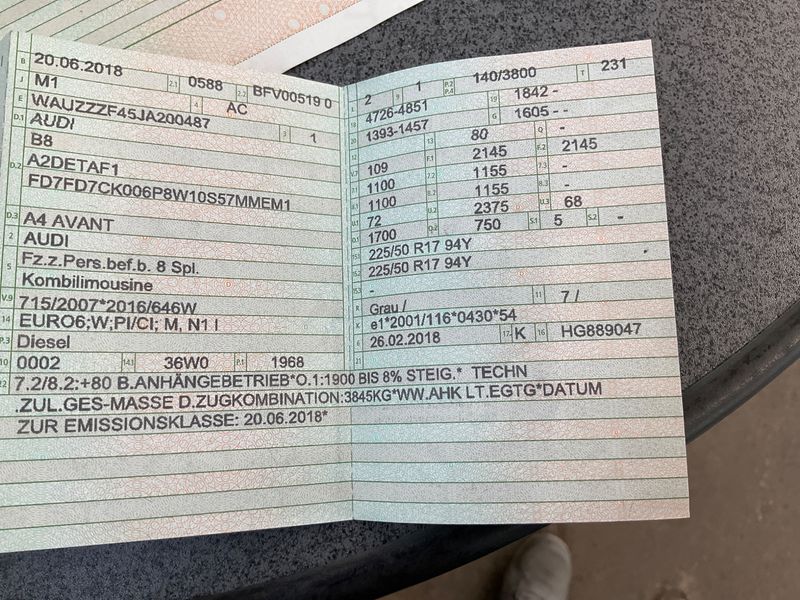 B 20.06.2018 2.1 0588 2.2 BFV00519 0
J M1 4 AC
E WAUZZZF45JA200487 3 1
D.1 AUDI
B8
D.2 A2DETAF1
FD7FD7CK006P8W10S57MMEM1
D.3 A4 AVANT
2 AUDI
5 Fz.z.Pers.bef.b. 8 Spl.
Kombilimousine
V.9 715/2007*2016/646W
14 EURO6;W;PI/CI; M, N1 I
P.3 Diesel
10 0002 14.1 36W0 P.1 1968
L 2 9 1 P.2 P.4 140/3800 T 231
18 4726-4851 19 1842 - -
20 1393-1457 G 1605 - -
12 13 80 Q -
V.7 109 F.1 2145 F.2 2145
7.1 1100 7.2 1155 7.3 -
8.1 1100 8.2 1155 8.3 -
U.1 72 U.2 2375 U.3 68
O.1 1700 O.2 750 S.1 5 S.2 -
15.1 225/50 R17 94Y
15.2 225/50 R17 94Y
15.3 -
R Grau / 11 7 /
K e1*2001/116*0430*54
6 26.02.2018 17 K 16 HG889047
21
22 7.2/8.2:+80 B.ANHÄNGEBETRIEB*O.1:1900 BIS 8% STEIG.* TECHN
.ZUL.GES-MASSE D.ZUGKOMBINATION:3845KG*WW.AHK LT.EGTG*DATUM
ZUR EMISSIONSKLASSE: 20.06.2018*